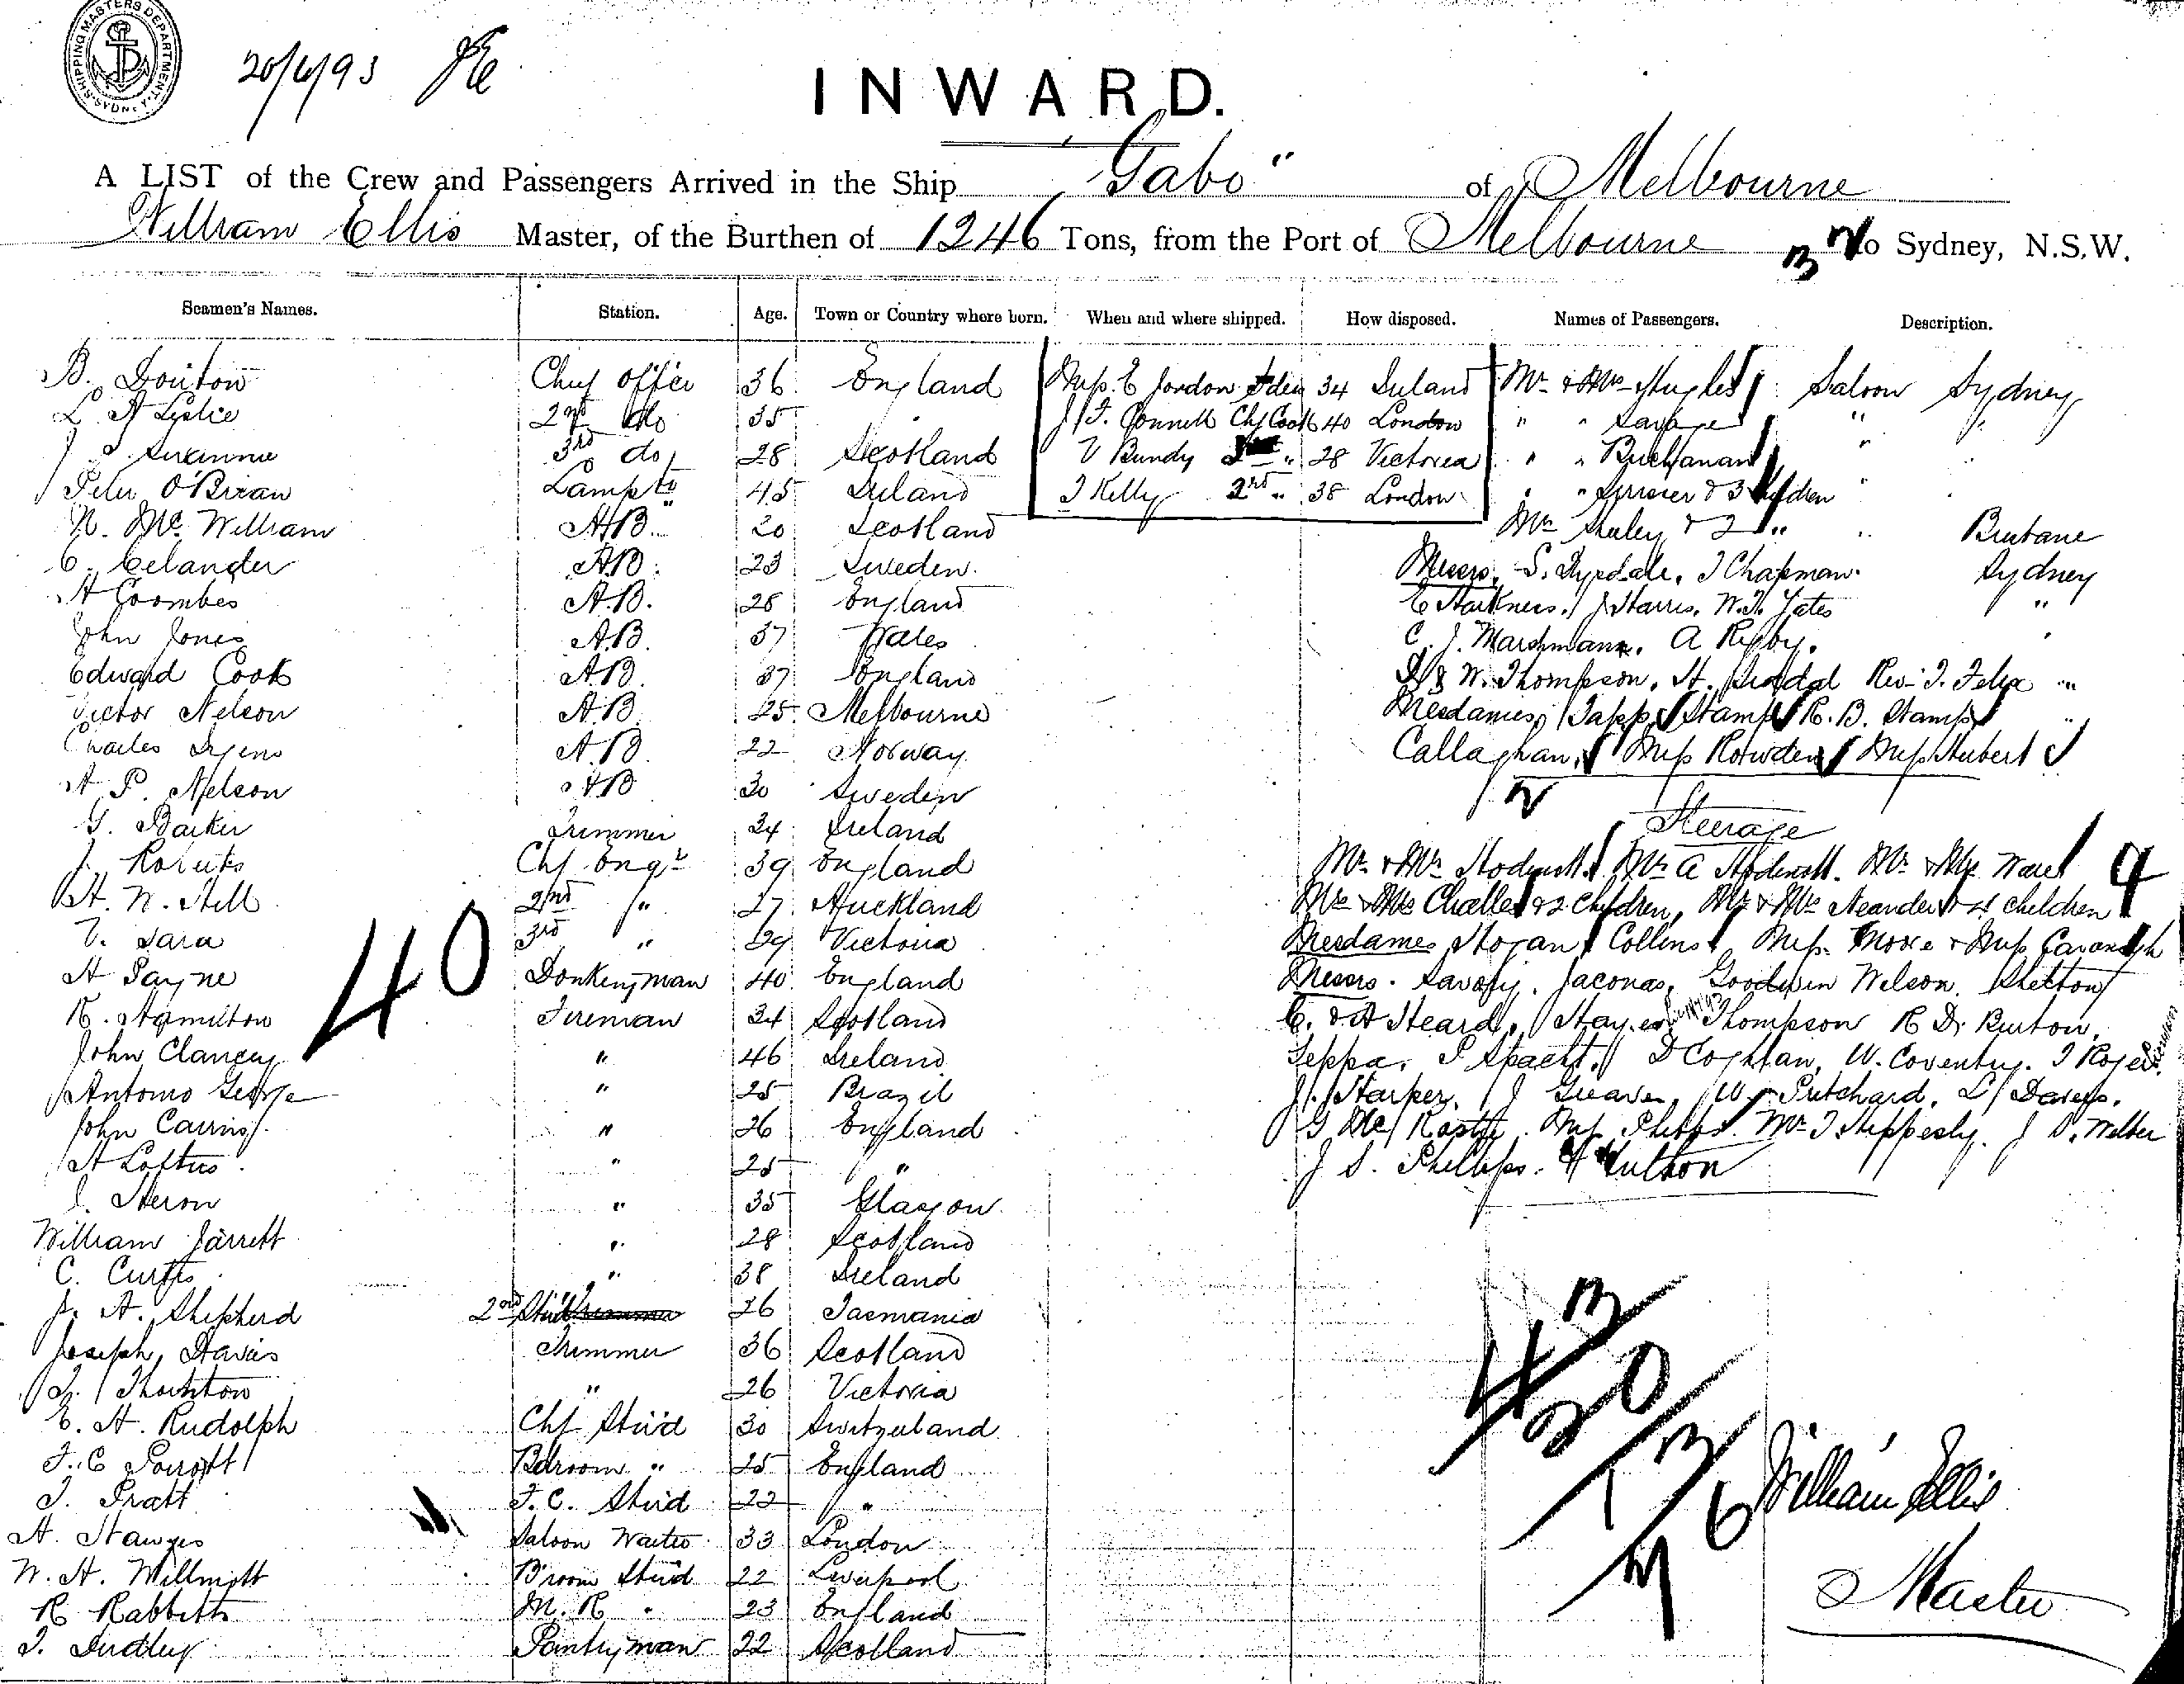 SHIPPING MASTERS DEPARTMENT SYDNEY
20/4/93
INWARD.
A LIST of the Crew and Passengers Arrived in the Ship "Gabo" of Melbourne
William Ellis Master, of the Burthen of 1246 Tons, from the Port of Melbourne to Sydney, N.S.W.
Seamen's Names. Station. Age. Town or Country where born. When and where shipped. How disposed. Names of Passengers. Description.
B. Chief Officer 36 England Miss E Jordon 34 Ireland Mr & Mrs Hughes Saloon Sydney
L. H Leslie 2nd do 35 " J. Connell Chf Cook 40 London " " Savage " "
3rd do 28 Scotland V Bundy " 28 Victoria " " Buchanan "
Peter O'Brien 45 Ireland J Kelly 2nd " 38 London " " & 3 Children "
N. McWilliam A.B. 20 Scotland Mrs & 2 " " Brisbane
C. Celander A.B. 23 Sweden Messrs. S. Drysdale, J Chapman. Sydney
H Coombes A.B. 28 England E Harkness. J Harris. W.T. Yates "
John Jones A.B. 37 Wales C. J. Marshmann. A Rigby. "
Edward Cook A.B. 37 England & W. Thompson, H. Rev. J. "
Victor Nelson A.B. 25 Melbourne Mesdames Tapp Stamp R. B. Stamp "
Charles A.B. 22 Norway Callaghan, Miss Rowden Miss Hubert
H. P. Nelson A.B. 30 Sweden
G. Barker Trimmer 34 Ireland Steerage
J. Roberts Chf Engr 39 England Mr & Mrs Mr A Mr & Mrs Ware 4
H. W. Hill 2nd " 27 Auckland Mr & Mrs & 2 Children, Mr & Mrs Neander & 4 children
V. Sara 3rd " 29 Victoria Mesdames Hogan Collins, Miss Moore & Miss Cavanagh
H Payne Donkeyman 40 England Messrs. Savory. Jaconas, Goodwin Wilson, Shelton
R. Hamilton Fireman 34 Scotland C. & A Heard, Thompson R D. Burton,
John Clancy " 46 Ireland Seppa. P Spaeth. D Coghlan, W. Coventry. J Roger
Antonio George " 25 Brazil J. Harper. J Greaves, W Pritchard, L Davey.
John " 26 England G Mc Miss Phelps. Mr J J Welber
H Loftus " 25 " J S. Phillips.
J. Heron " 35 Glasgow
William Jarrett " 28 Scotland
C. Curtis " 38 Ireland
J. A. Shepherd 2nd Stwd 26 Tasmania
Joseph Davis Trimmer 36 Scotland
J. Thornton " 26 Victoria
E. H. Rudolph Chf Stwd 30 Switzerland
F. C Parrott Bdroom " 25 England
J. Pratt F.C. Stwd 22 "
H. Hawges Saloon Waiter 33 London
W. H. Willmott B'room Stwd 22 Liverpool
R Rabbetts M. R " 23 England
J. Dudley Pantryman 22 Scotland
40
William Ellis
Master